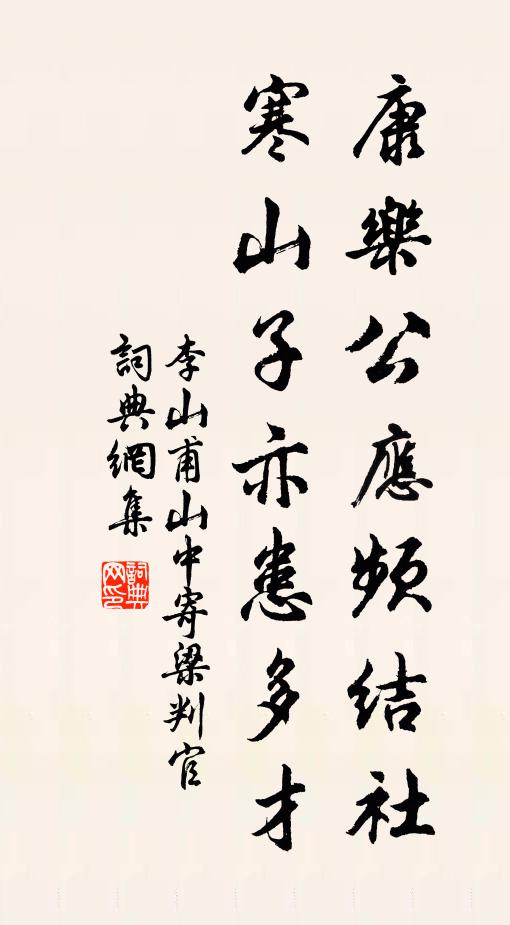 康樂公應頻結社
寒山子亦患多才
李山甫山中寄梁判官
詞典網集
詞典网印